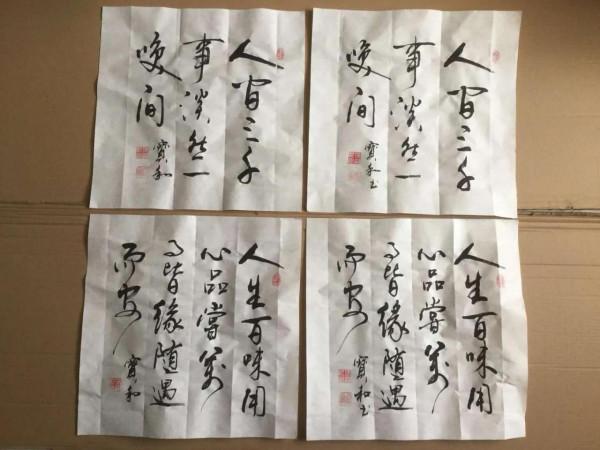 人间三千
事淡然一
咲间
寶和书
人间三千
事淡然一
咲间
寶和
人生百味用
心品嘗萬
事皆缘随遇
而安
寶和书
人生百味用
心品嘗萬
事皆缘随遇
而安
寶和